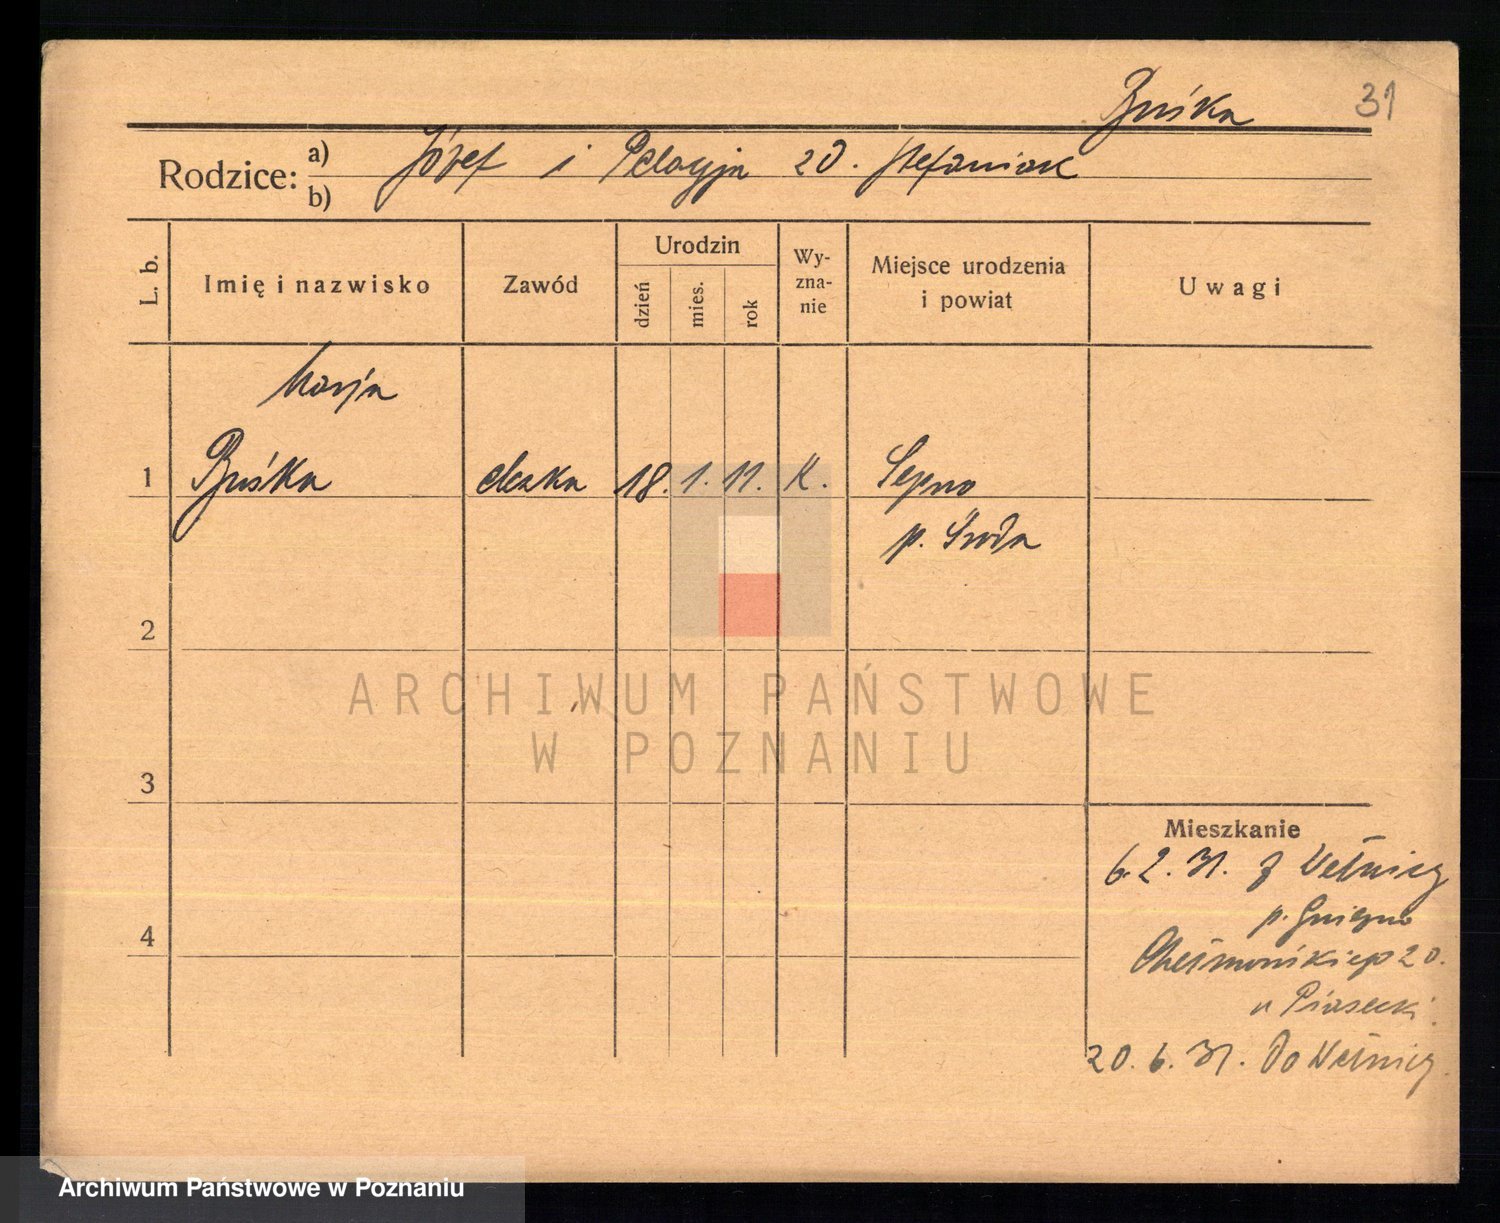 Buśka 31
Rodzice: a) Józef i Pelagja zd. Stefaniak
b)
L. b.
Imię i nazwisko
Zawód
Urodzin
dzień
mies.
rok
Wy-
zna-
nie
Miejsce urodzenia
i powiat
Uwagi
Marja
1 Buśka 18. 1. 11. K.
p. Środa
2
3
4
ARCHIWUM PAŃSTWOWE
W POZNANIU
Mieszkanie
6. 2. 31. z Wełnicy
p. Gniezno
20.
u Piasecki
20. 6. 31. Do Wełnicy
Archiwum Państwowe w Poznaniu